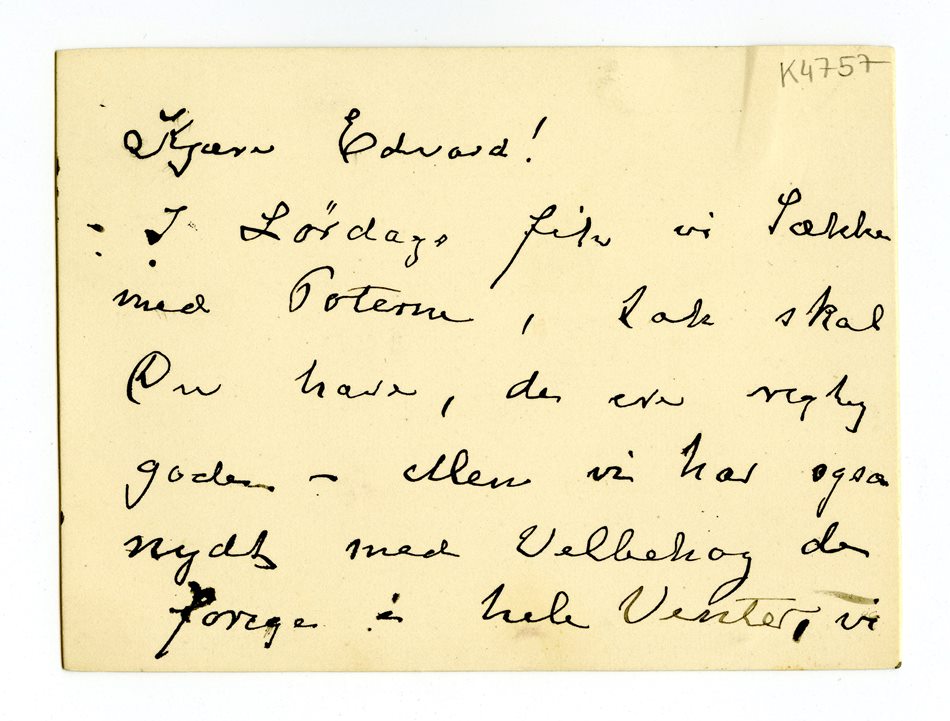 K4757
Kjære Edvard!
I Lørdags fik vi Sækken
med Poterne, Tak skal
Du have, de ere rigtig
gode – Men vi har også
nydt med Velbehag de
forige i hele Vinter, vi